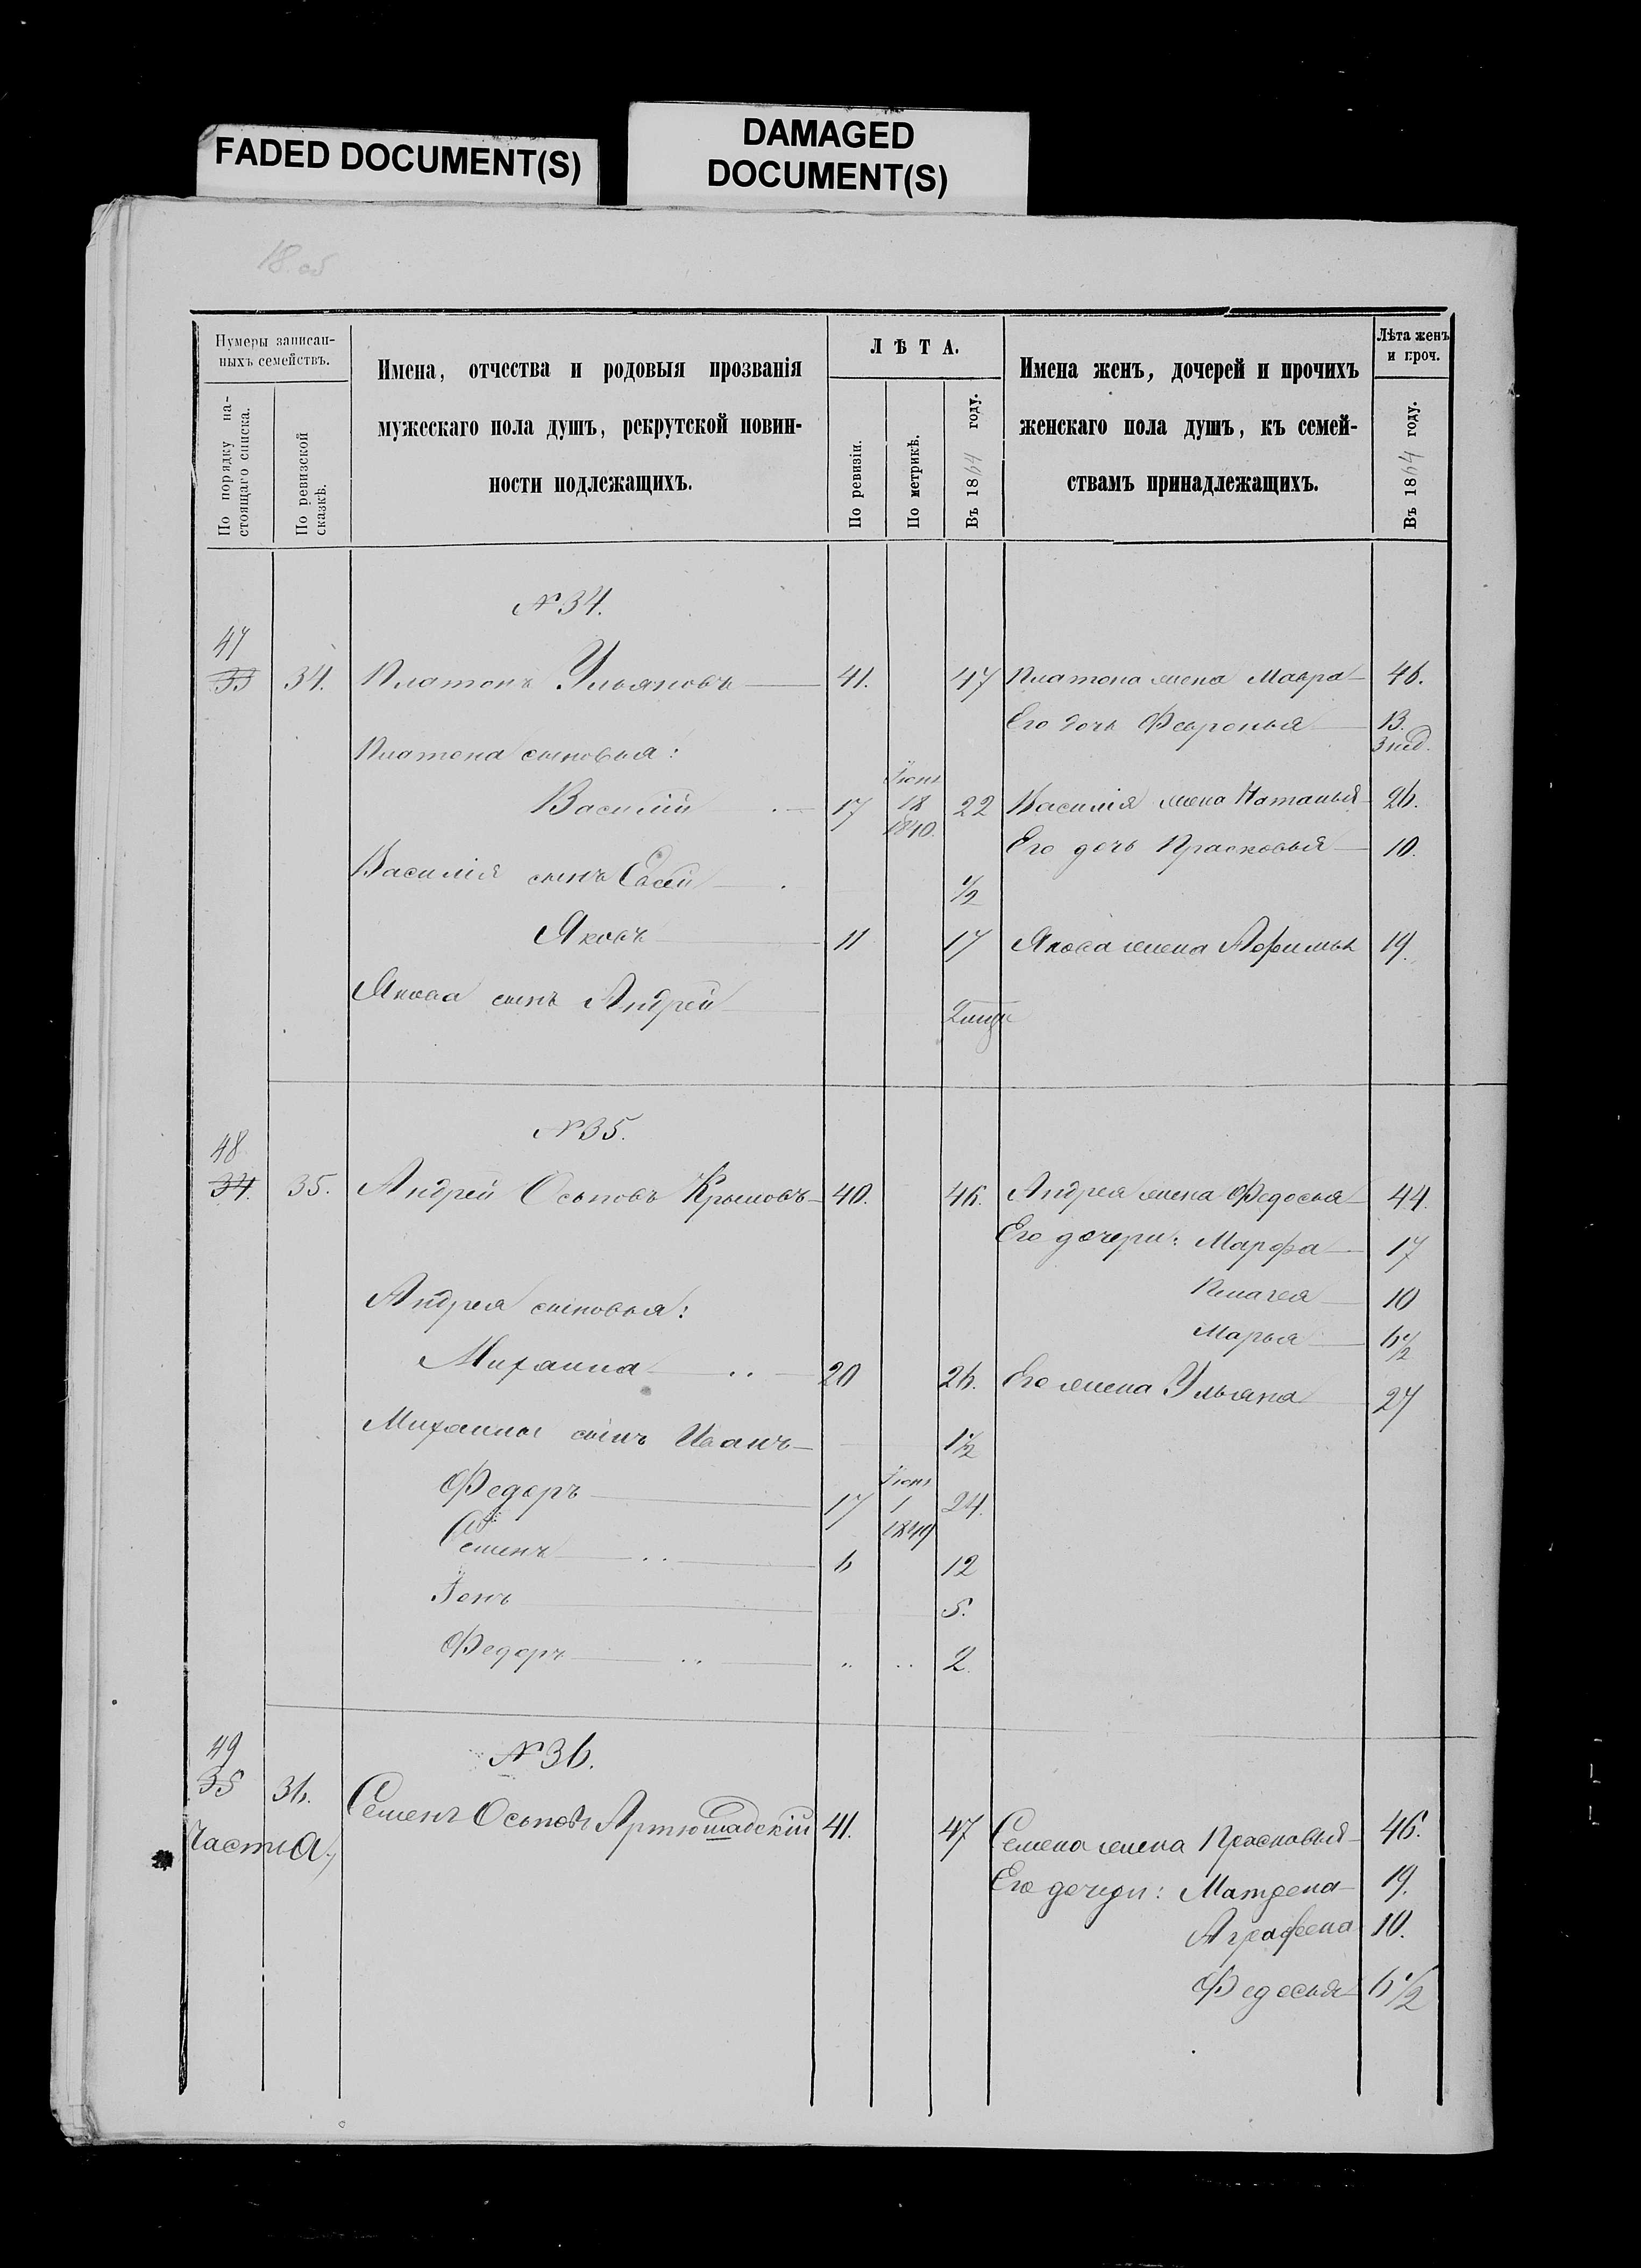 FADED DOCUMENT(S)
DAMAGED
DOCUMENT(S)
18 об
Нумеры записан-
ныхъ семействъ.
По порядку на-
стоящаго списка.
По ревизской
сказкѣ.
Имена, отчества и родовыя прозванія
мужескаго пола душъ, рекрутской повин-
ности подлежащихъ.
ЛѢТА.
По ревизіи.
По метрикѣ.
Въ 1864 году.
Имена женъ, дочерей и прочихъ
женскаго пола душъ, къ семей-
ствамъ принадлежащихъ.
Лѣта женъ
и проч.
Въ 1864 году.
№ 34.
47
33 34. Платонъ Ульяновъ 41. 47 Платона жена Мавра 46.
Его дочь Февронья 13.
3 нед.
Платона сыновья:
Іюня
Василій 17 18 22 Василія жена Наталья 26.
1840.
Его дочь Прасковья 10.
Василія сынъ Евсей 1/2
Яковъ 11 17 Якова жена Афимья 19.
Якова сынъ Андрей
№ 35.
48
34. 35. Андрей Осиповъ Крымовъ 40. 46. Андрея жена Федосья 44.
Его дочери: Марфа 17
Пелагея 10
Андрея сыновья:
Марья 6 1/2
Михаила 20 26. Его жена Ульяна 27
Михаилы сынъ Иванъ 1 1/2
Іюня
Федоръ 17 1 24.
Семенъ 6 12
5.
Федоръ 2.
№ 36.
49
35 36. Семенъ Осиповъ Артюшавскій 41. 47 Семена жена Прасковья 46.
Части А.)
Его дочери: Матрена 19.
Аграфена 10.
Федосья 6 1/2